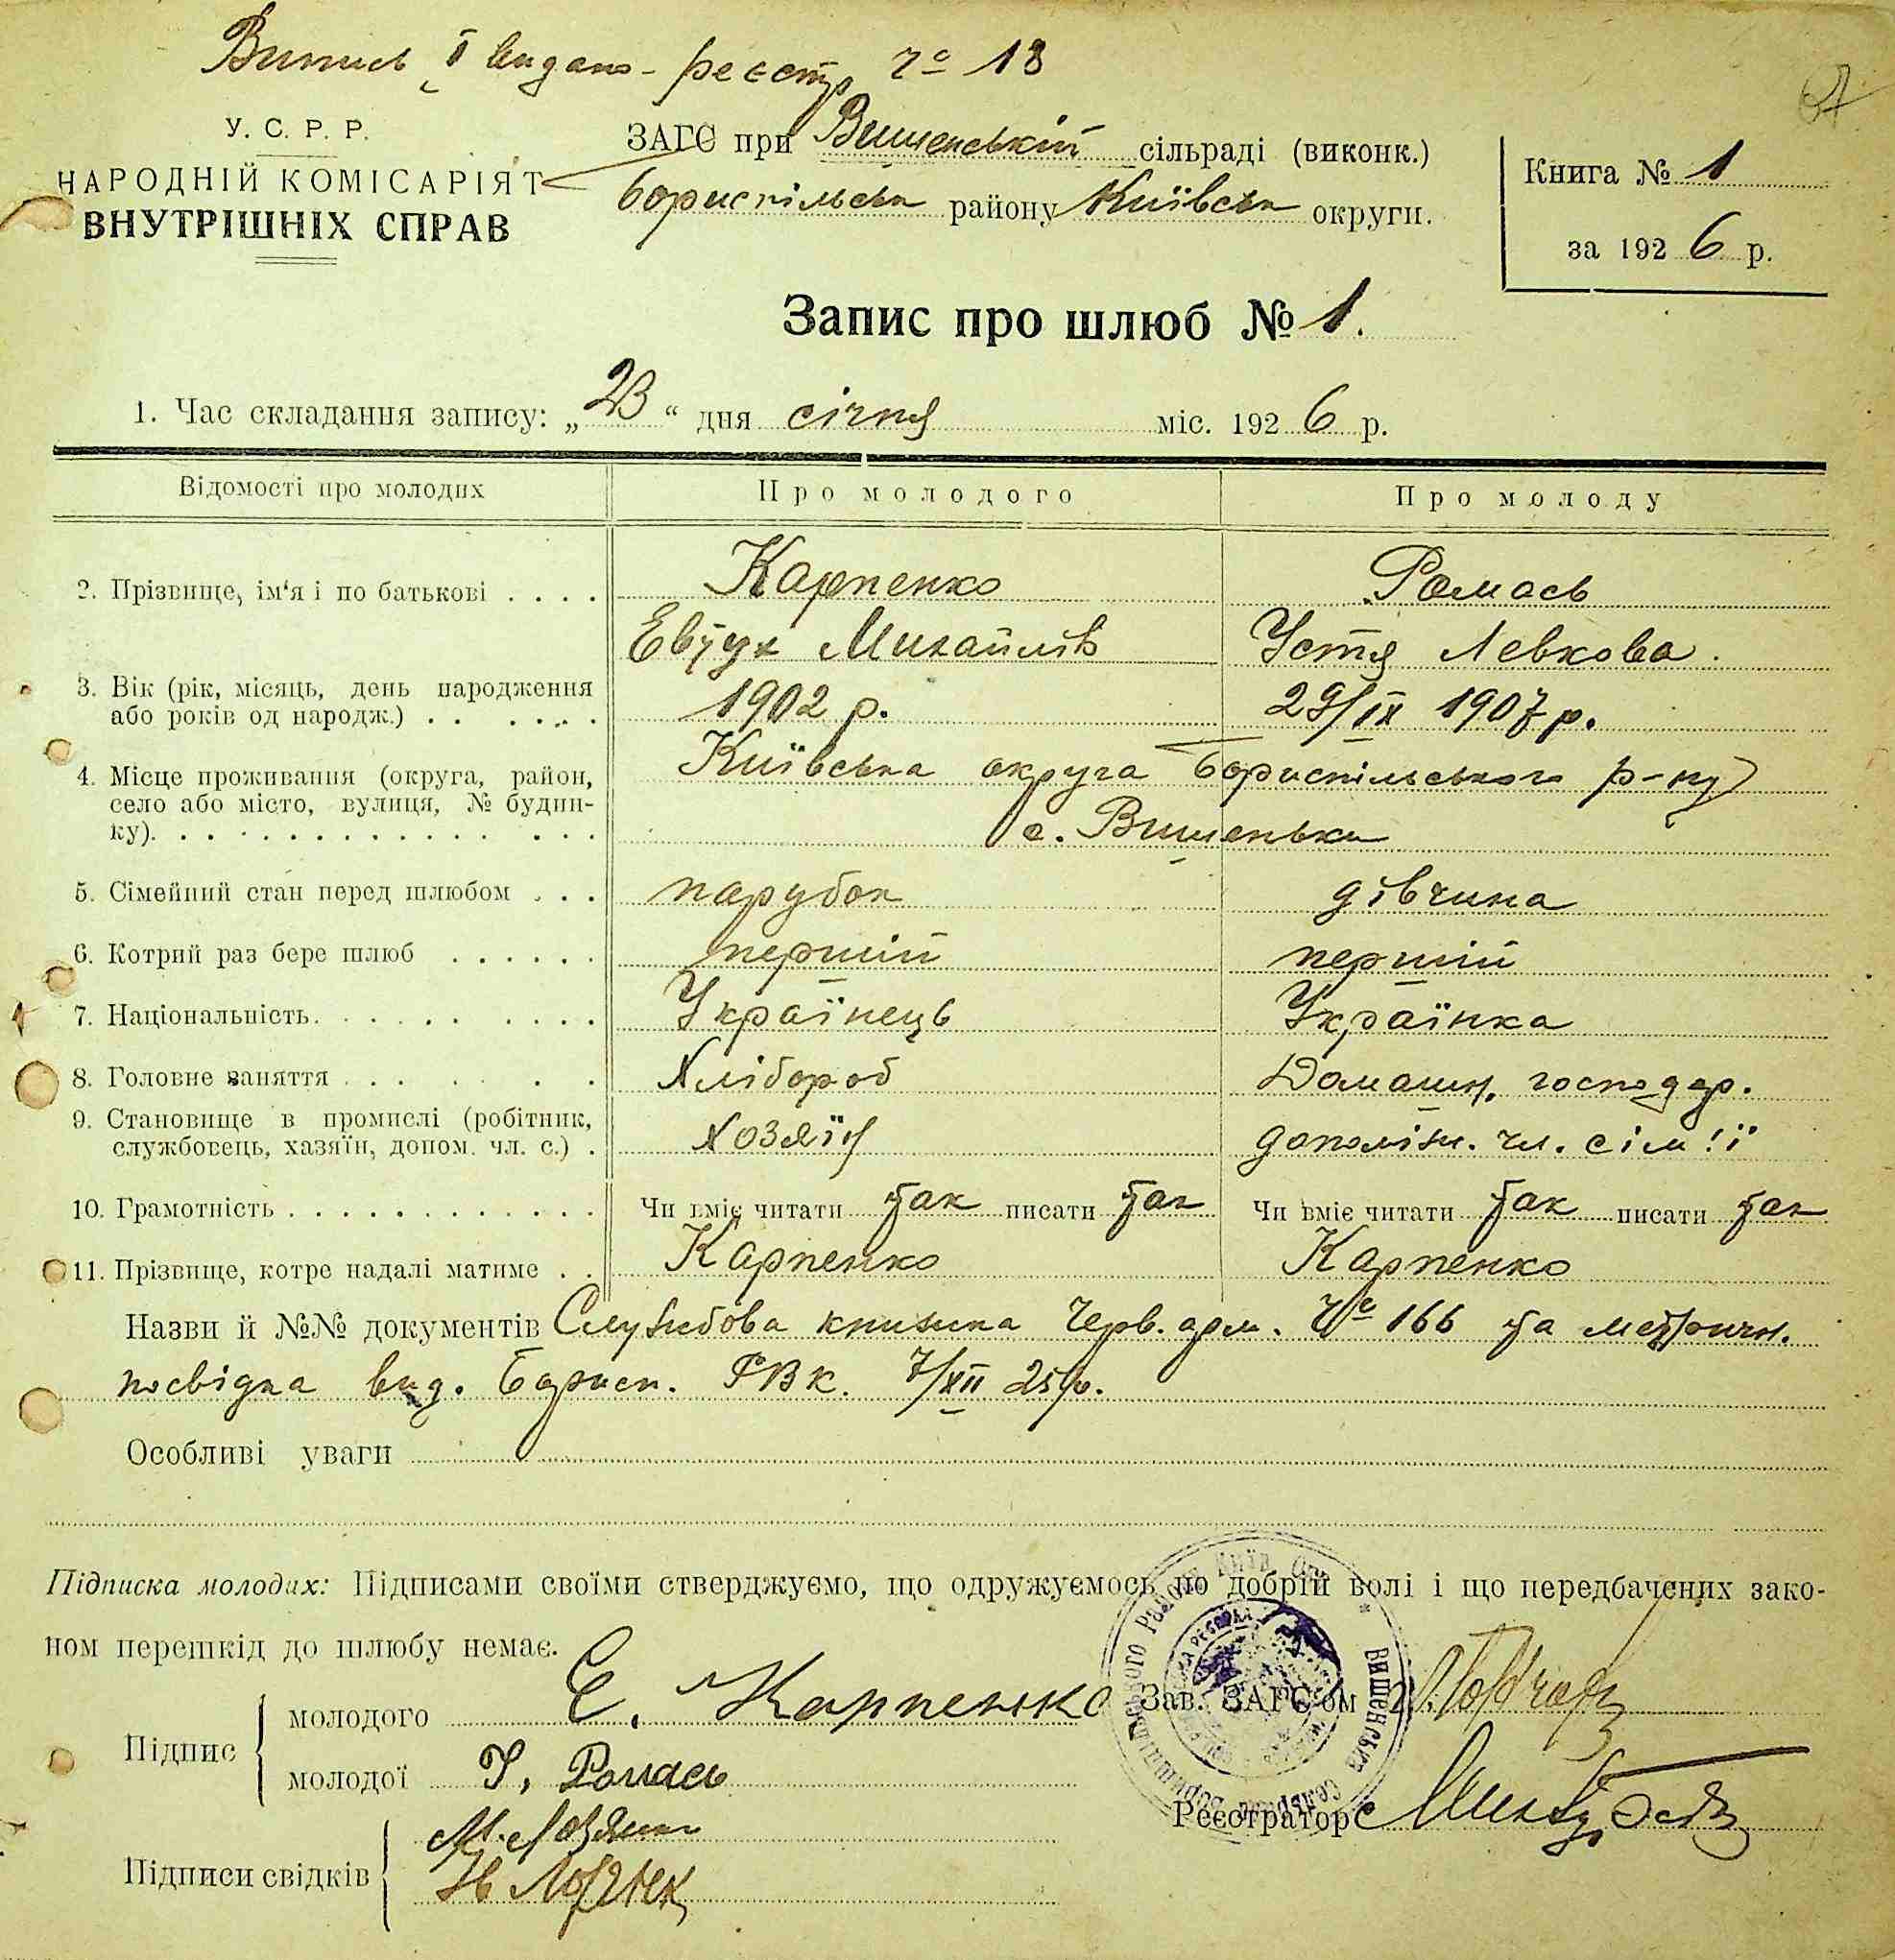 Випись видано - реєстр. № 18
У. С. Р. Р.
НАРОДНІЙ КОМІСАРІЯТ
ВНУТРІШНІХ СПРАВ
ЗАГС при Вишенській сільраді (виконк.)
Бориспільськ району Київськ округи.
Книга № 1
за 1926 р.
Запис про шлюб № 1.
1. Час складання запису: „23“ дня січня міс. 1926 р.
Відомості про молодих Про молодого Про молоду
2. Прізвище, ім‘я і по батькові Карпенко Ромась
Михайлів Устя Левкова.
3. Вік (рік, місяць, день народження
або років од народж.) 1902 р. 29/IX 1907 р.
4. Місце проживання (округа, район, Київська округа Бориспільського р-ну
село або місто, вулиця, № будин-
ку) с. Вишеньки
5. Сімейний стан перед шлюбом парубок дівчина
6. Котрий раз бере шлюб перший перший
7. Національність Українець Українка
8. Головне заняття Хлібороб Домашн. господар.
9. Становище в промислі (робітник,
службовець, хазяїн, допом. чл. с.) хозяїн допоміжн. чл. сім'ї
10. Грамотність Чи вміє читати так писати так Чи вміє читати так писати так
11. Прізвище, котре надалі матиме Карпенко Карпенко
Назви й №№ документів Службова книжка Черв. арм. № 166 та метричн.
посвідка вид. Борисп. РВК. 7/XII 25 р.
Особливі уваги
Підписка молодих: Підписами своїми стверджуємо, що одружуємось по добрій волі і що передбачених зако-
ном перешкід до шлюбу немає.
Підпис
молодого Є. Карпенко
молодої У. Ромась
Зав. ЗАГС'ом
Реєстратор
Підписи свідків